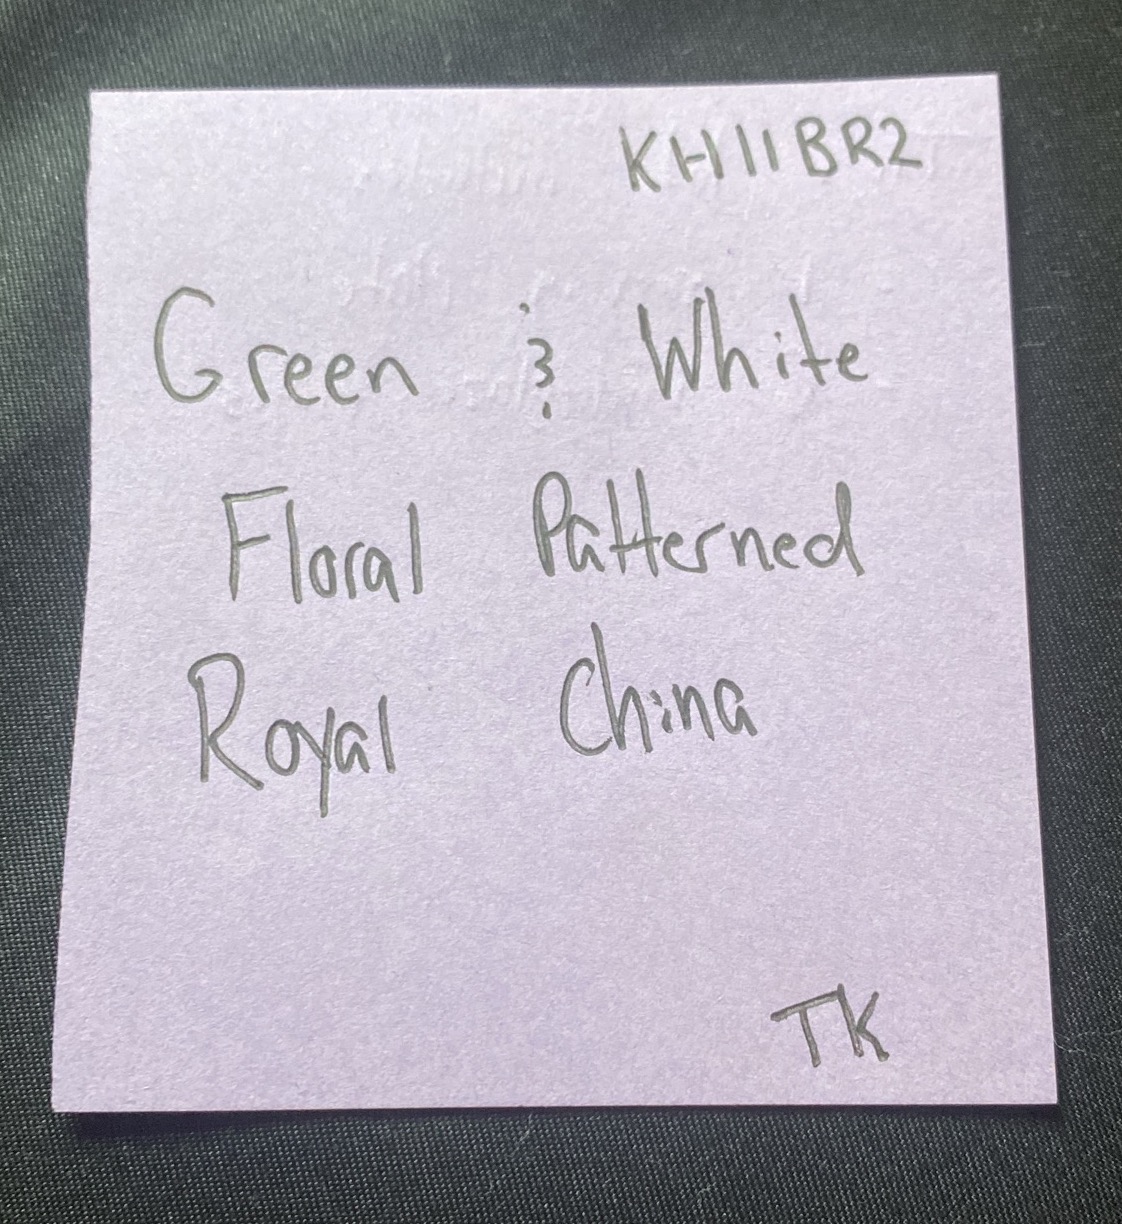 KH11BR2
Green & White
Floral Patterned
Royal China
TK